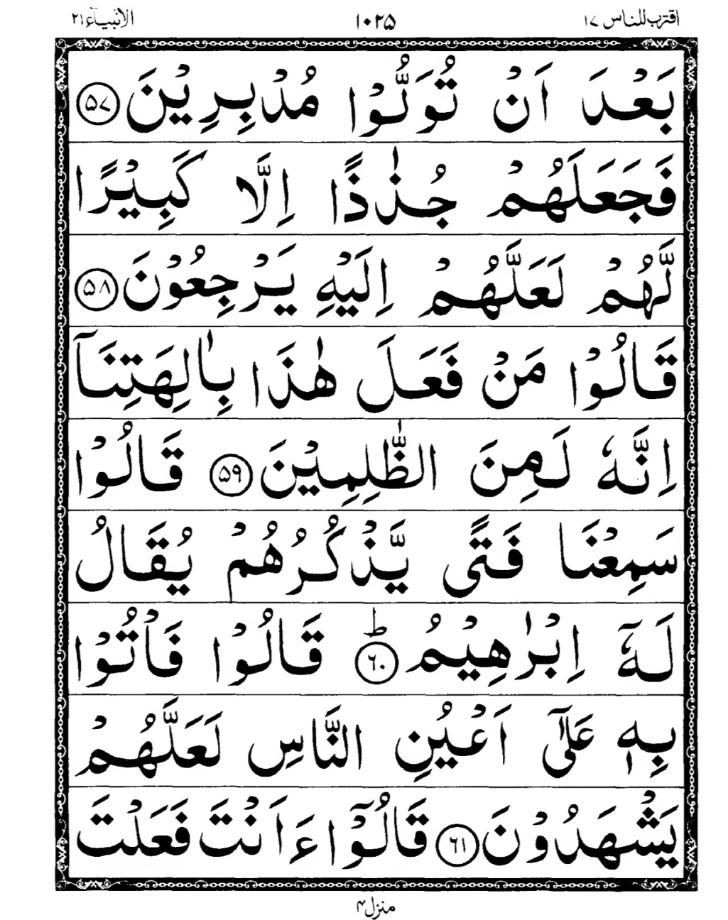 اقترب للناس ۱۷ ۱۰۲۵ الانبیآء ۲۱
بَعْدَ اَنْ تُوَلُّوْا مُدْبِرِيْنَ ﴿۵۷﴾
فَجَعَلَهُمْ جُذٰذًا اِلَّا كَبِيْرًا
لَّهُمْ لَعَلَّهُمْ اِلَيْهِ يَرْجِعُوْنَ ﴿۵۸﴾
قَالُوْا مَنْ فَعَلَ هٰذَا بِاٰلِهَتِنَاۤ
اِنَّهٗ لَمِنَ الظّٰلِمِيْنَ ﴿۵۹﴾ قَالُوْا
سَمِعْنَا فَتًى يَّذْكُرُهُمْ يُقَالُ
لَهٗۤ اِبْرٰهِيْمُ ؕ﴿۶۰﴾ قَالُوْا فَاْتُوْا
بِهٖ عَلٰۤى اَعْيُنِ النَّاسِ لَعَلَّهُمْ
يَشْهَدُوْنَ ﴿۶۱﴾ قَالُوْۤا ءَاَنْتَ فَعَلْتَ
منزل ۴